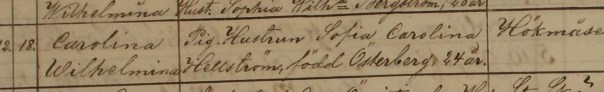 Wilhelmina Hust. Sophia Wilh= Bergström, 28 år
12. 18. Carolina Pig. Hustrun Sofia Carolina Hökmåse
Wilhelmina Hellström, född Österberg. 24 år.